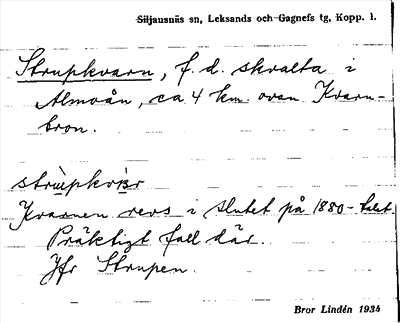 Siljansnäs sn, Leksands och Gagnefs tg, Kopp. l.
Strupkvarn, f. d. skvalta i
Almoån, ca 4 km. ovan Kvarn-
bron.
Kvarnen revs i slutet på 1880-talet.
Präktigt fall där.
Jfr Strupen.
Bror Lindén 1934